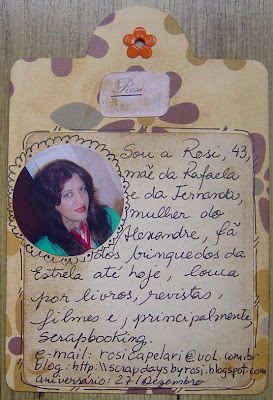 Rosi
Sou a Rosi, 43,
mãe da Rafaela
e da Fernanda,
mulher do
Alexandre, fã
dos brinquedos da
Estrela até hoje, louca
por livros, revistas,
filmes e, principalmente,
Scrapbooking.
e-mail: rosicapelari@uol.com.br
blog: http:\\scrapdaysbyrosi.blogspot.com
aniversário: 27/Dezembro